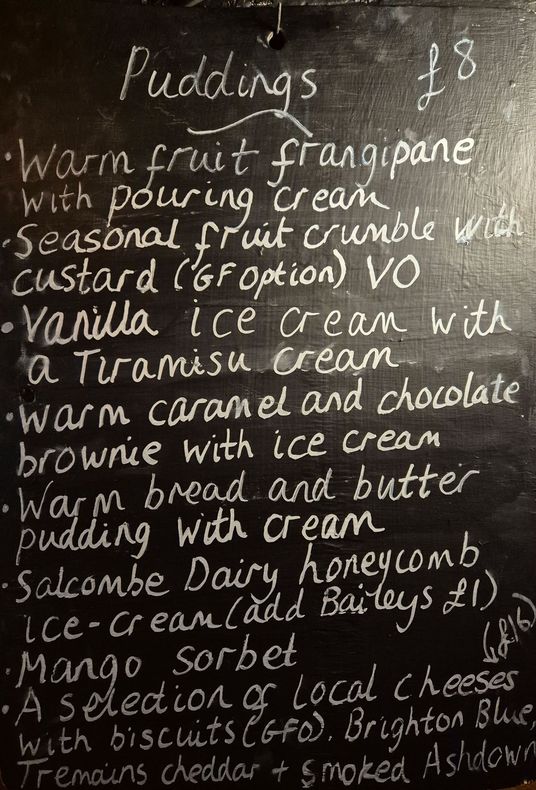 Puddings £8
· Warm fruit frangipane
with pouring cream
· Seasonal fruit crumble with
custard (GF option) VO
· Vanilla ice cream with
a Tiramisu cream
· Warm caramel and chocolate
brownie with ice cream
· Warm bread and butter
pudding with cream
· Salcombe Dairy honeycomb
ice-cream (add Baileys £1)
· Mango Sorbet (£16)
· A selection of local cheeses
with biscuits (GFO). Brighton Blue,
Tremains cheddar + smoked Ashdown